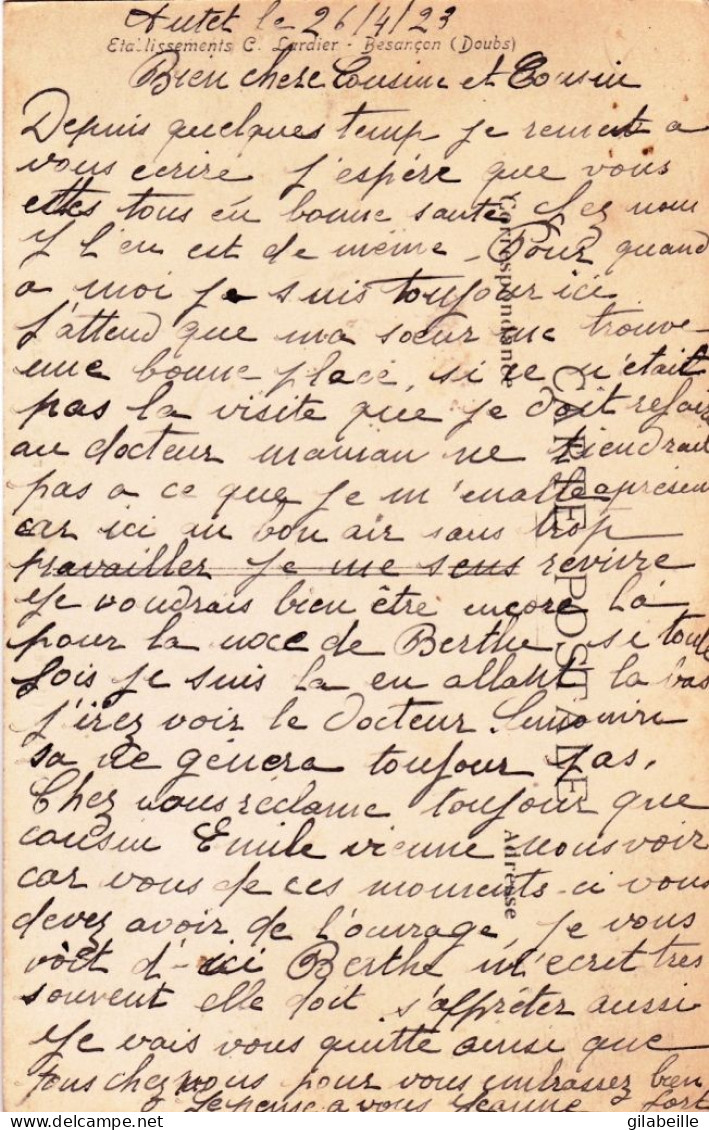 Autet le 26/4/23
Etablissements C. Lardier - Besançon (Doubs)
Bien chere Cousine et Cousin
Depuis quelques temp je remet a
vous ecrire J'espére que vous
ettes tous en bonne santé Chez nous
Il en est de même - Pour quand
a moi je suis toujour ici
J'attend que ma soeur me trouve
une bonne place, si ce n'était
pas la visite que je doit refaire
au docteur maman ne tiendrait
pas a ce que je m'en aille apresent
car ici au bon air sans trop
travailler je me sens revivre
Je voudrais bien être encore la
pour la noce de Berthe, si toute
fois je suis la en allant la bas
j'irez voir le docteur
sa ne génera toujour pas.
Chez nous réclame toujour que
cousin Emile vienne nous voir
car vous de ces moments-ci vous
devez avoir de l'ouvrage, je vous
voit d'-ici Berthe m'ecrit tres
souvent elle doit s'apprêter aussi
Je vais vous quitte ainsi que
tous chez nous pour vous embrassez bien
fort
Je pense a vous Jeanne
Correspondance
CARTE POSTALE
Adresse
gilabeille